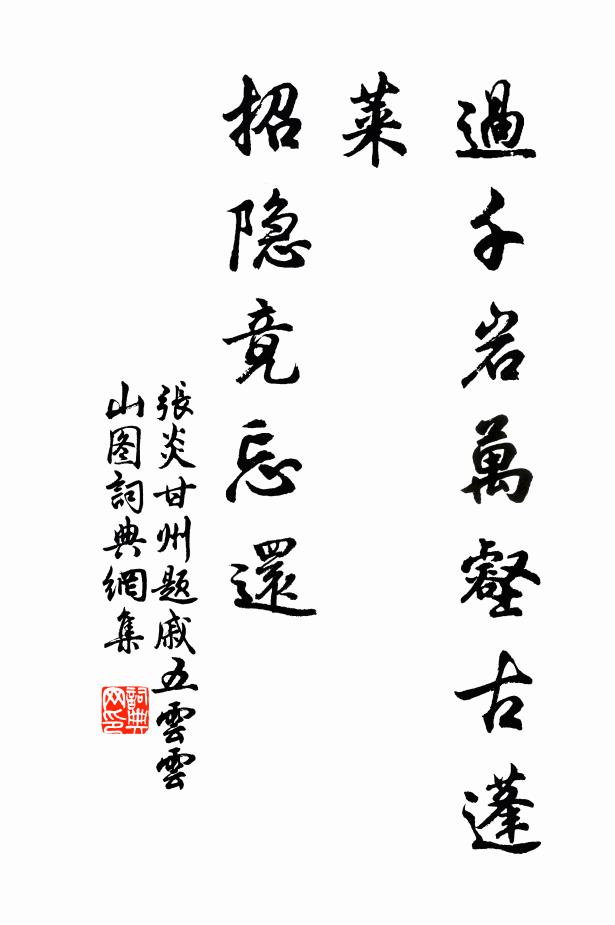 過千岩萬壑古蓬
萊
招隐竟忘還
張炎甘州題戚五雲雲
山图詞典網集
詞典
网印